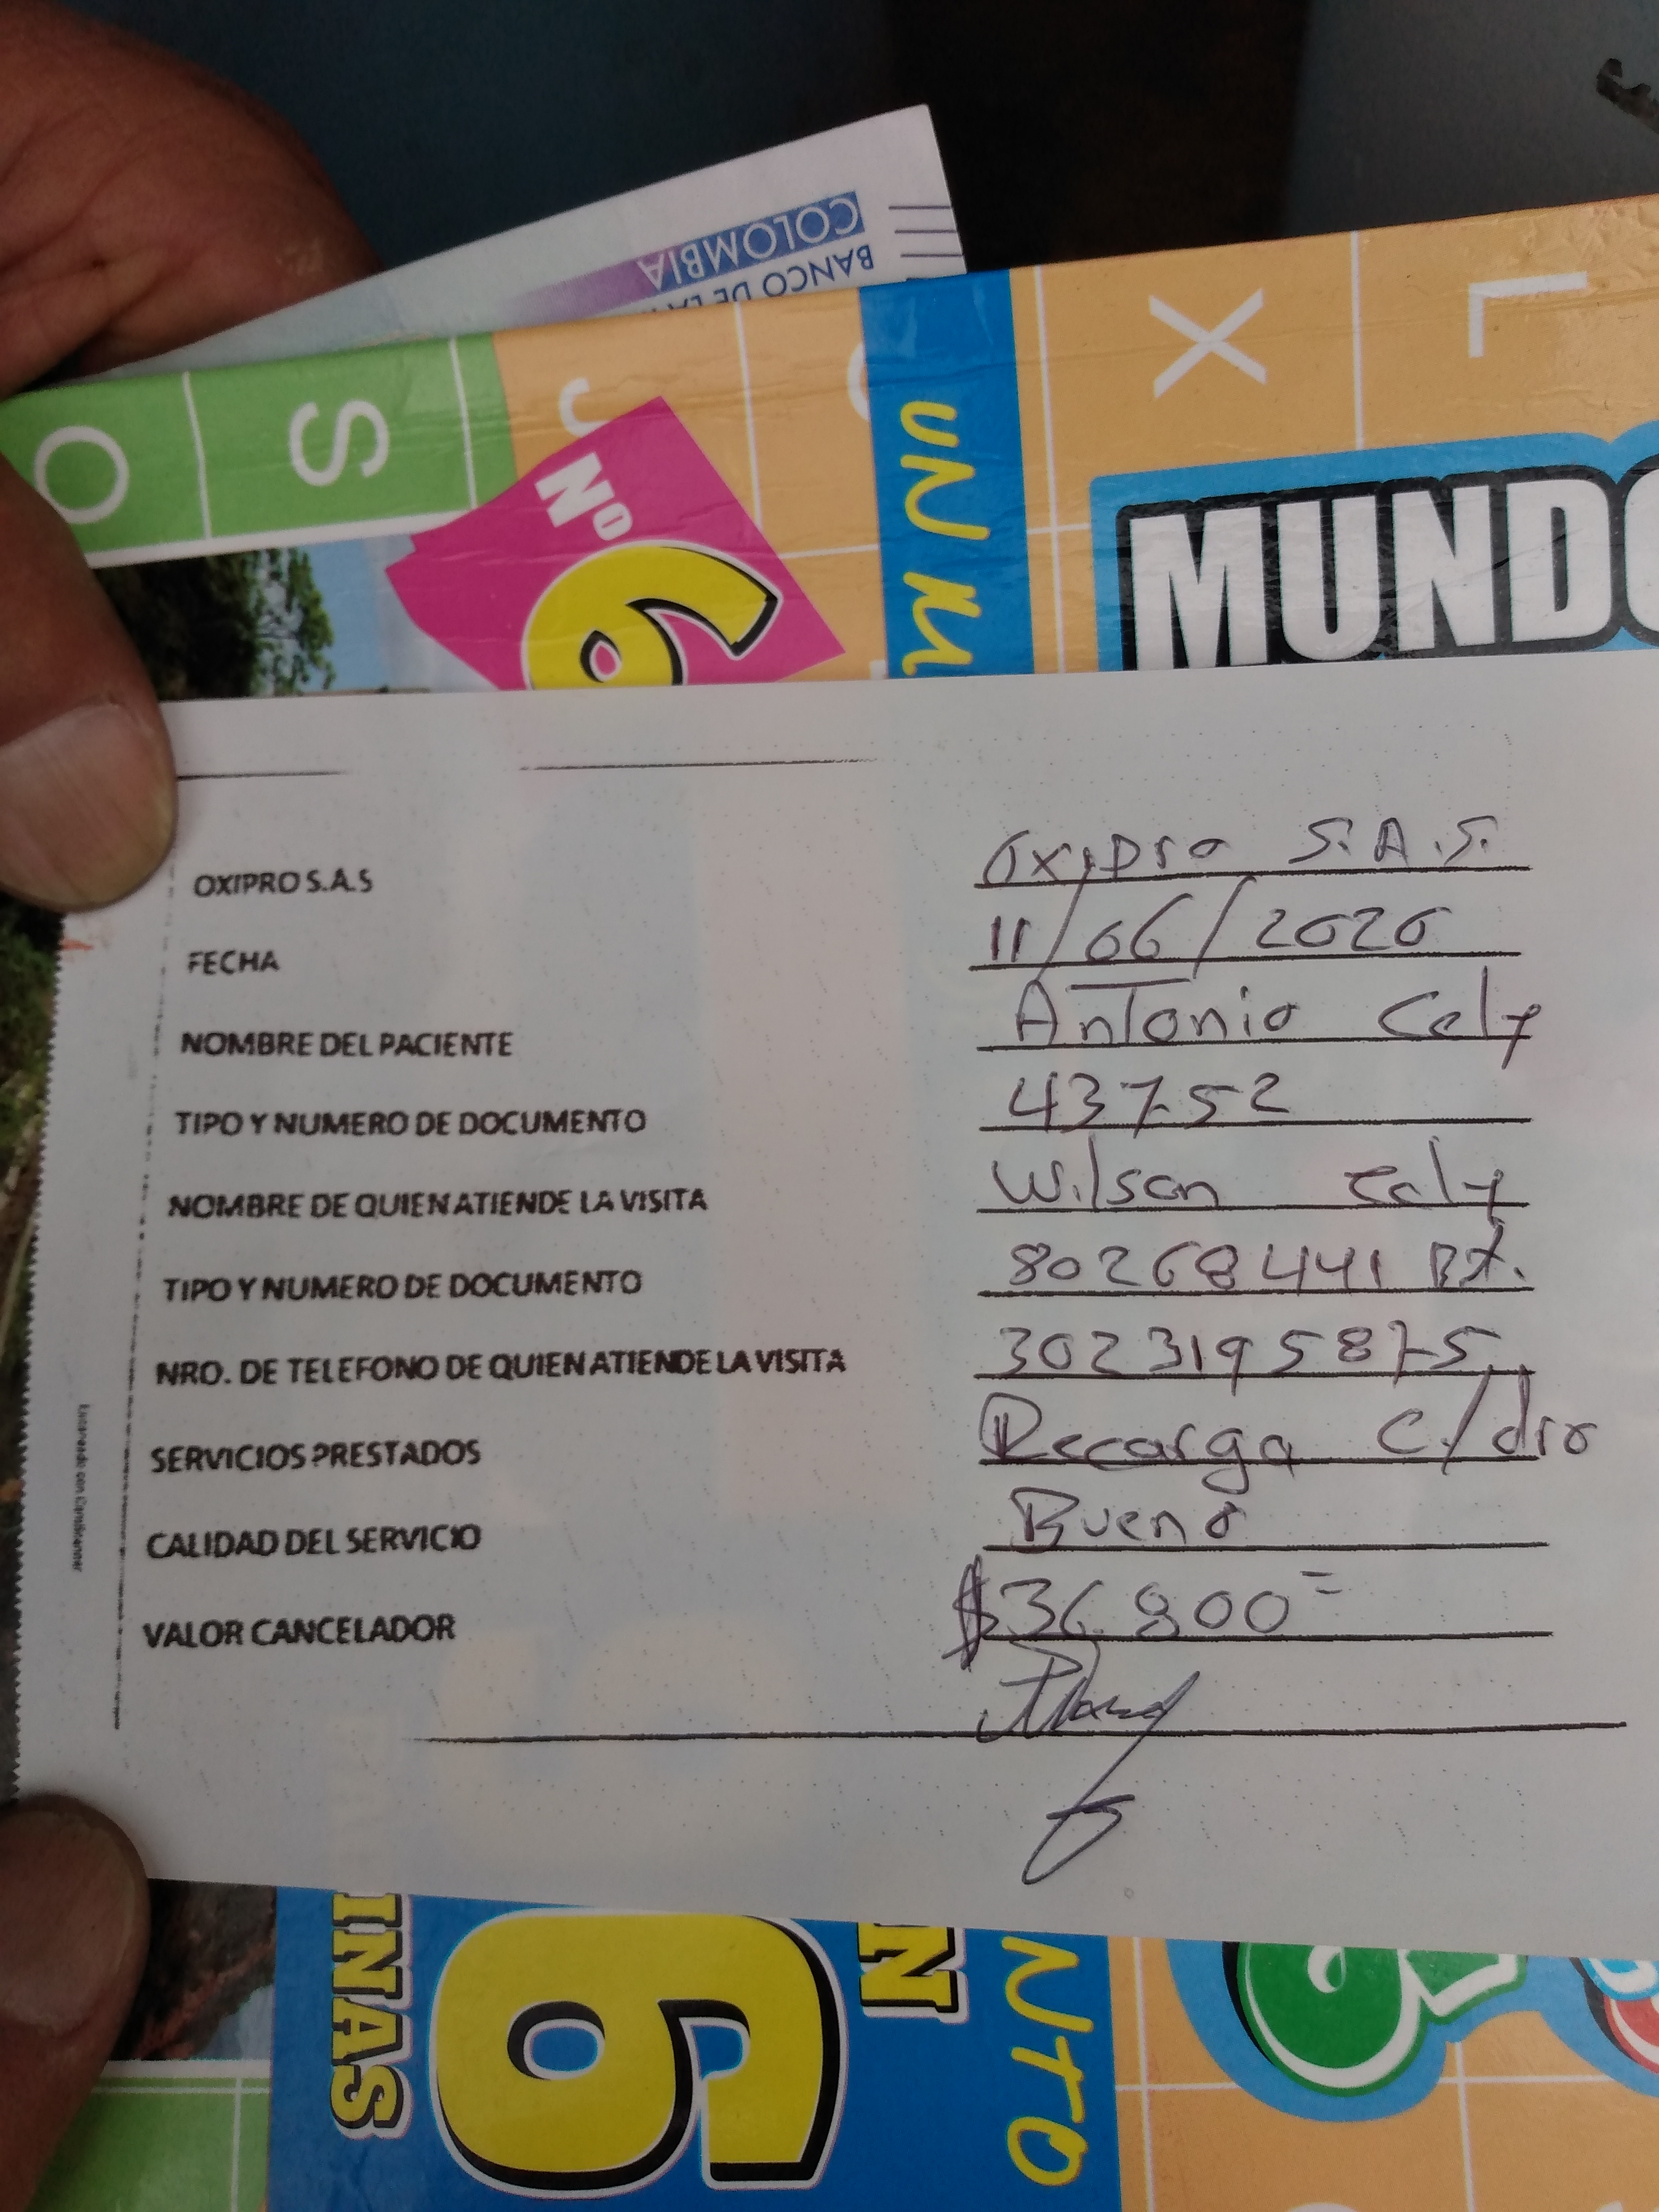 BANCO DE LA
COLOMBIA
O S J X L
Nº 6
UN
MUNDO
OXIPRO S.A.S Oxipro S.A.S.
FECHA 11/06/2020
NOMBRE DEL PACIENTE Antonio Cely
TIPO Y NUMERO DE DOCUMENTO 43752
NOMBRE DE QUIEN ATIENDE LA VISITA Wilson Cely
TIPO Y NUMERO DE DOCUMENTO 80268441 Bt.
NRO. DE TELEFONO DE QUIEN ATIENDE LA VISITA 3023195875
SERVICIOS PRESTADOS Recarga C/dro
CALIDAD DEL SERVICIO Bueno
VALOR CANCELADOR $36.800=
Escaneado con CamScanner
INAS
6
EN
NTO